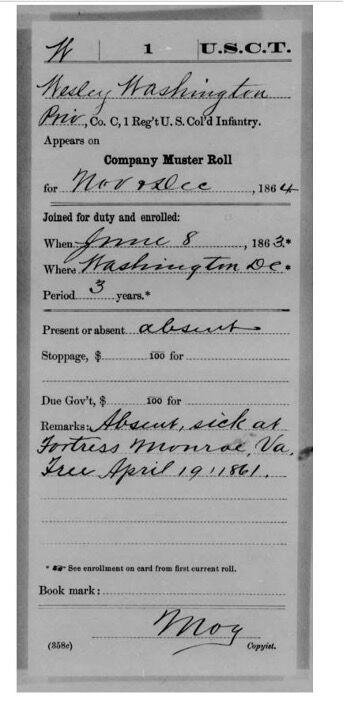 W | 1 | U.S.C.T.
Wesley Washington
Priv., Co. C, 1 Reg't U. S. Col'd Infantry.
Appears on
Company Muster Roll
for Nov & Dec, 1864
Joined for duty and enrolled:
When June 8, 1863*
Where Washington DC*
Period 3 years.*
Present or absent absent
Stoppage, $ 100 for
Due Gov't, $ 100 for
Remarks: Absent, sick at
Fortress Monroe, Va.
Free April 19, 1861.
* See enrollment on card from first current roll.
Book mark:
Moy
(358c) Copyist.